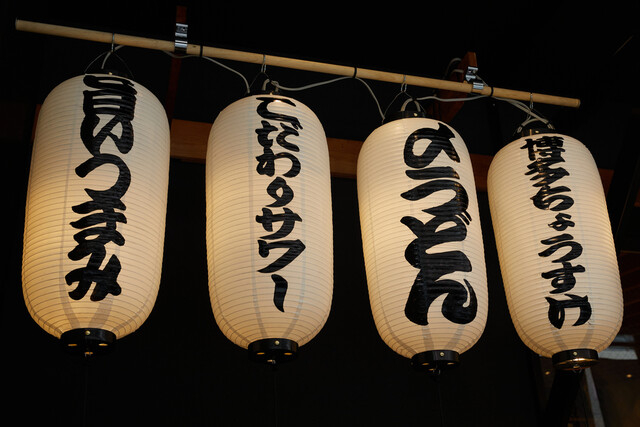 旨いつまみ
こだわりサワー
のうどん
博多ちょうすけ